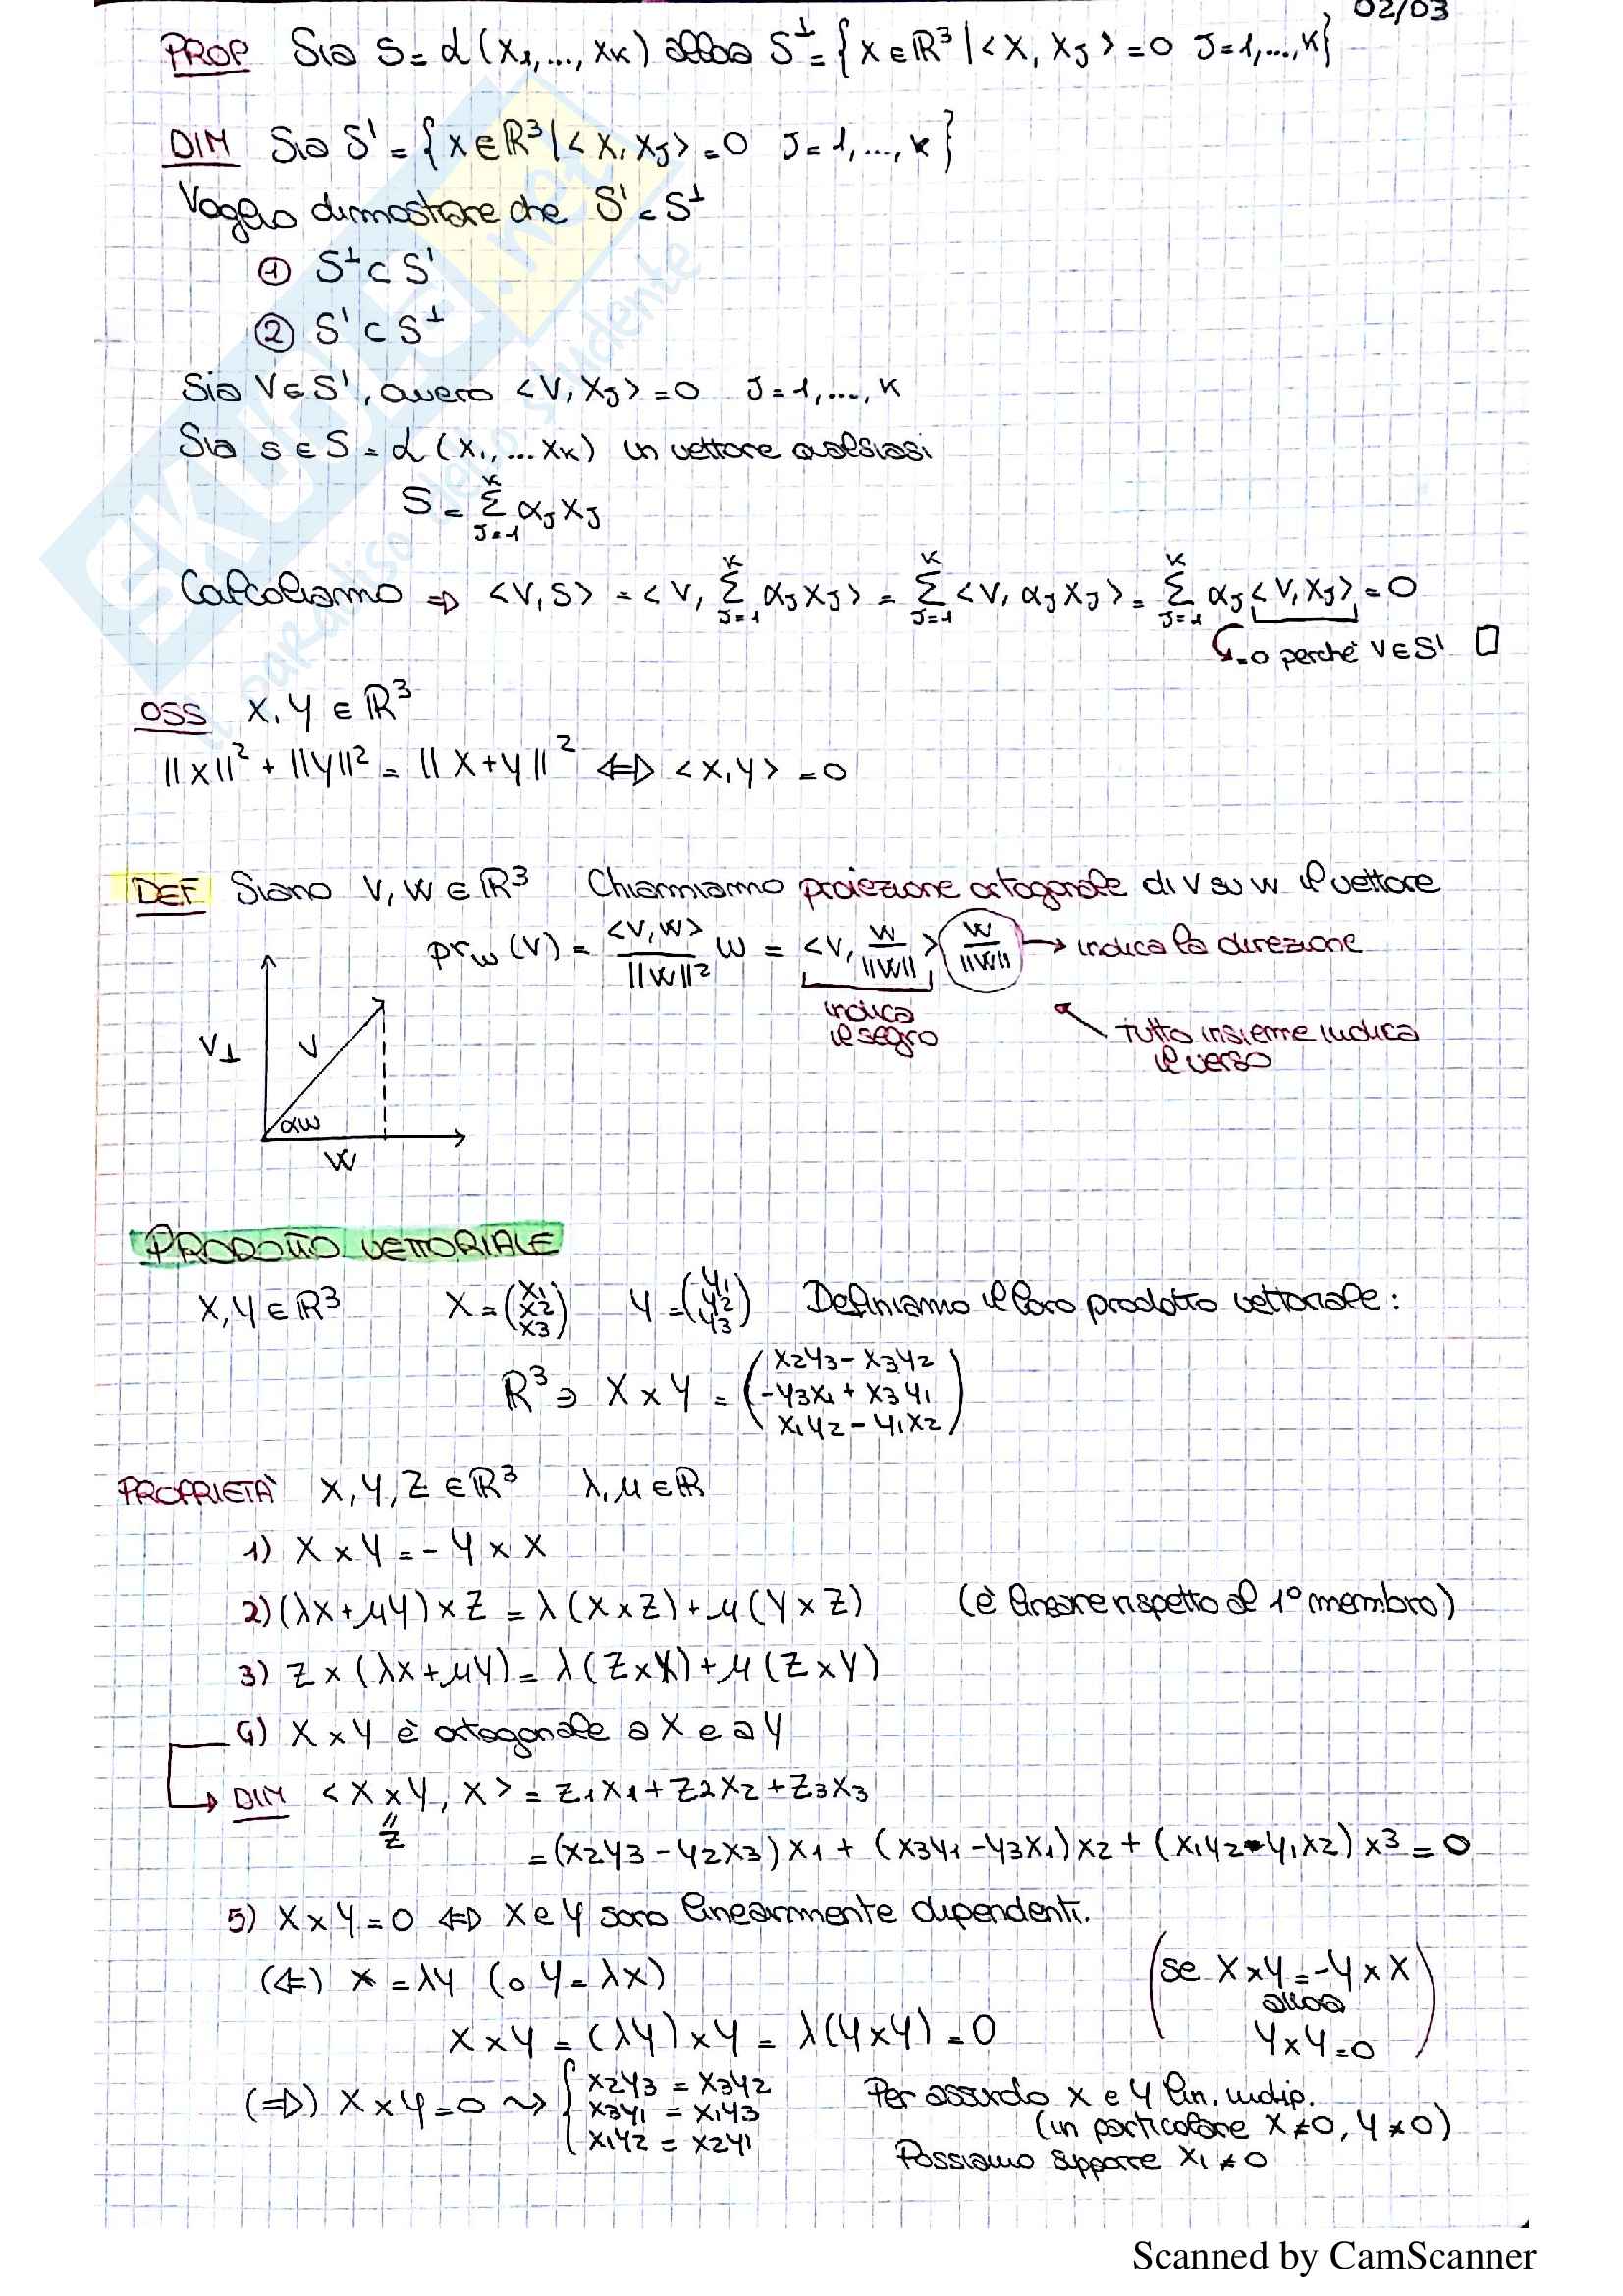 02/03
PROP Sia S = L(X1,..., XK) allora S⊥ = {X ∈ ℝ³ | <X, XJ> = 0 J=1,...,K}
DIM Sia S' = {X ∈ ℝ³ | <X, XJ> = 0 J=1,...,K}
Voglio dimostrare che S' = S⊥
① S⊥ ⊂ S'
② S' ⊂ S⊥
Sia V ∈ S', ovvero <V, XJ> = 0 J=1,...,K
Sia s ∈ S = L(X1,...XK) un vettore qualsiasi
S = Σ_{J=1}^{K} αJ XJ
Calcoliamo ⇒ <V,S> = <V, Σ_{J=1}^{K} αJ XJ> = Σ_{J=1}^{K} <V, αJ XJ> = Σ_{J=1}^{K} αJ <V, XJ> = 0
=0 perché V ∈ S' □
OSS X, Y ∈ ℝ³
||X||² + ||Y||² = ||X+Y||² ⇔ <X,Y> = 0
DEF Siano V, W ∈ ℝ³ Chiamiamo proiezione ortogonale di V su W il vettore
prw(V) = <V,W>/||W||² W = <V, W/||W||> W/||W|| → indica la direzione
indica il segno
tutto insieme indica il verso
V⊥ V
αW
W
PRODOTTO VETTORIALE
X, Y ∈ ℝ³ X = (X1 X2 X3) Y = (Y1 Y2 Y3) Definiamo il loro prodotto vettoriale:
ℝ³ ∋ X x Y = (X2Y3 - X3Y2
-Y3X1 + X3Y1
X1Y2 - Y1X2)
PROPRIETÀ X, Y, Z ∈ ℝ³ λ, μ ∈ ℝ
1) X x Y = - Y x X
2) (λX + μY) x Z = λ(X x Z) + μ(Y x Z) (è lineare rispetto al 1° membro)
3) Z x (λX + μY) = λ(Z x X) + μ(Z x Y)
4) X x Y è ortogonale a X e a Y
DIM <X x Y, X> = Z1X1 + Z2X2 + Z3X3
" Z
= (X2Y3 - Y2X3)X1 + (X3Y1 - Y3X1)X2 + (X1Y2 - Y1X2)X3 = 0
5) X x Y = 0 ⇔ X e Y sono linearmente dipendenti.
(⇐) X = λY (o Y = λX)
(se X x Y = -Y x X
allora
Y x Y = 0)
X x Y = (λY) x Y = λ(Y x Y) = 0
(⇒) X x Y = 0 ⤳ { X2Y3 = X3Y2
X3Y1 = X1Y3
X1Y2 = X2Y1
Per assurdo X e Y lin. indip.
(in particolare X ≠ 0, Y ≠ 0)
Possiamo supporre X1 ≠ 0
Scanned by CamScanner